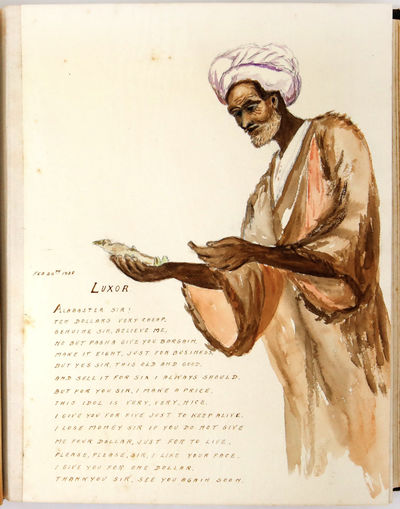 FEB 20TH 1900
LUXOR
ALABASTER SIR!
TEN DOLLARS VERY CHEAP.
GENUINE SIR, BELIEVE ME,
NO BUT PASHA GIVE YOU BARGAIN.
MAKE IT EIGHT, JUST FOR BUSINESS.
BUT YES SIR, THIS OLD AND GOOD.
AND SELL IT FOR SIX I ALWAYS SHOULD.
BUT FOR YOU SIR, I MAKE A PRICE.
THIS IDOL IS VERY, VERY, NICE.
I GIVE YOU FOR FIVE JUST TO KEEP ALIVE.
I LOSE MONEY SIR IF YOU DO NOT GIVE
ME FOUR DOLLAR, JUST FOR TO LIVE.
PLEASE, PLEASE, SIR, I LIKE YOUR FACE.
I GIVE YOU FOR ONE DOLLAR.
THANKYOU SIR, SEE YOU AGAIN SOON.